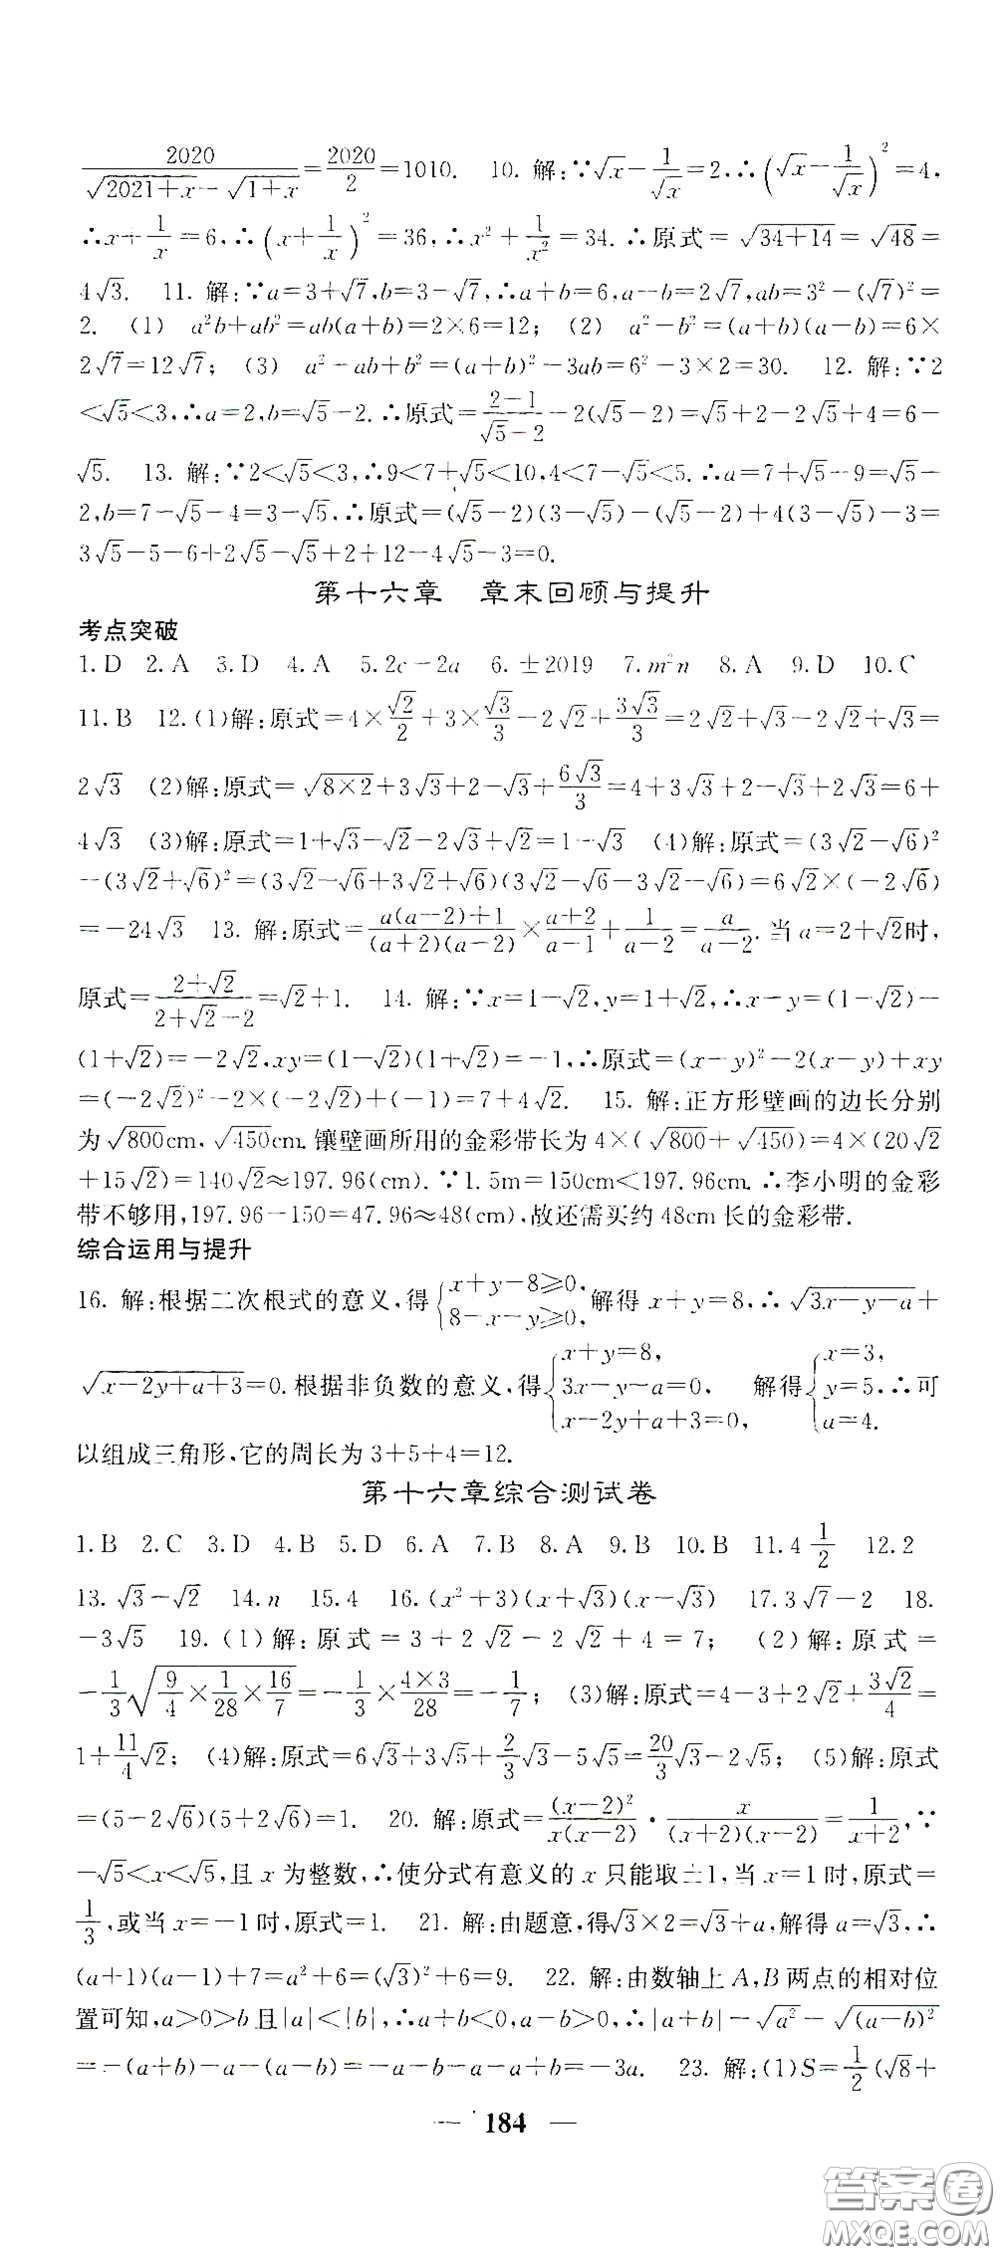 2020/(√(2021+x)-√(1+x))=2020/2=1010. 10. 解:∵√x-1/√x=2,∴(√x-1/√x)²=4,
∴x+1/x=6,∴(x+1/x)²=36,∴x²+1/x²=34.∴原式=√(34+14)=√48=
4√3. 11. 解:∵a=3+√7,b=3-√7,∴a+b=6,a-b=2√7,ab=3²-(√7)²=
2. (1) a²b+ab²=ab(a+b)=2×6=12; (2) a²-b²=(a+b)(a-b)=6×
2√7=12√7; (3) a²-ab+b²=(a+b)²-3ab=6²-3×2=30. 12. 解:∵2
<√5<3,∴a=2,b=√5-2.∴原式=(2-1)/(√5-2)-2(√5-2)=√5+2-2√5+4=6-
√5. 13. 解:∵2<√5<3,∴9<7+√5<10,4<7-√5<5.∴a=7+√5-9=√5-
2,b=7-√5-4=3-√5,∴原式=(√5-2)(3-√5)-(√5-2)+4(3-√5)-3=
3√5-5-6+2√5-√5+2+12-4√5-3=0.
第十六章 章末回顾与提升
考点突破
1.D 2.A 3.D 4.A 5.2c-2a 6.±2019 7.m²n 8.A 9.D 10.C
11.B 12.(1)解:原式=4×√2/2+3×√3/3-2√2+3√3/3=2√2+√3-2√2+√3=
2√3 (2)解:原式=√(8×2)+3√3+2-√3+6√3/3=4+3√3+2-√3+2√3=6+
4√3 (3)解:原式=1+√3-√2-2√3+√2=1-√3 (4)解:原式=(3√2-√6)²
-(3√2+√6)²=(3√2-√6+3√2+√6)(3√2-√6-3√2-√6)=6√2×(-2√6)
=-24√3 13. 解:原式=(a(a-2)+1)/((a+2)(a-2))×(a+2)/(a-1)+1/(a-2)=a/(a-2).当a=2+√2时,
原式=(2+√2)/(2+√2-2)=√2+1. 14. 解:∵x=1-√2,y=1+√2,∴x-y=(1-√2)-
(1+√2)=-2√2,xy=(1-√2)(1+√2)=-1,∴原式=(x-y)²-2(x-y)+xy
=(-2√2)²-2×(-2√2)+(-1)=7+4√2. 15. 解:正方形壁画的边长分别
为√800cm,√450cm.镶壁画所用的金彩带长为4×(√800+√450)=4×(20√2
+15√2)=140√2≈197.96(cm).∵1.5m=150cm<197.96cm.∴李小明的金彩
带不够用,197.96-150=47.96≈48(cm),故还需买约48cm长的金彩带.
综合运用与提升
16. 解:根据二次根式的意义,得{x+y-8≥0, 8-x-y≥0,解得x+y=8,∴√(3x-y-a)+
√(x-2y+a+3)=0.根据非负数的意义,得{x+y=8, 3x-y-a=0, x-2y+a+3=0, 解得{x=3, y=5, a=4.∴可
以组成三角形,它的周长为3+5+4=12.
第十六章综合测试卷
1.B 2.C 3.D 4.B 5.D 6.A 7.B 8.A 9.B 10.B 11.4 1/2 12.2
13.√3-√2 14.n 15.4 16.(x²+3)(x+√3)(x-√3) 17.3√7-2 18.
-3√5 19.(1)解:原式=3+2√2-2√2+4=7; (2)解:原式=
-1/3√(9/4×1/28×16/7)=-1/3×(4×3)/28=-1/7; (3)解:原式=4-3+2√2+3√2/4=
1+11/4√2; (4)解:原式=6√3+3√5+2/3√3-5√5=20/3√3-2√5; (5)解:原式
=(5-2√6)(5+2√6)=1. 20. 解:原式=(x-2)²/(x(x-2))·x/((x+2)(x-2))=1/(x+2),∵
-√5<x<√5,且x为整数,∴使分式有意义的x只能取±1,当x=1时,原式=
1/3,或当x=-1时,原式=1. 21. 解:由题意,得√3×2=√3+a,解得a=√3,∴
(a+1)(a-1)+7=a²+6=(√3)²+6=9. 22. 解:由数轴上A,B两点的相对位
置可知,a>0>b且|a|<|b|,∴a+b<0,a-b>0,∴|a+b|-√a²-√(a-b)²
=-(a+b)-a-(a-b)=-a-b-a-a+b=-3a. 23. 解:(1)S=1/2(√8+
— 184 —
答案卷
MXQE.COM